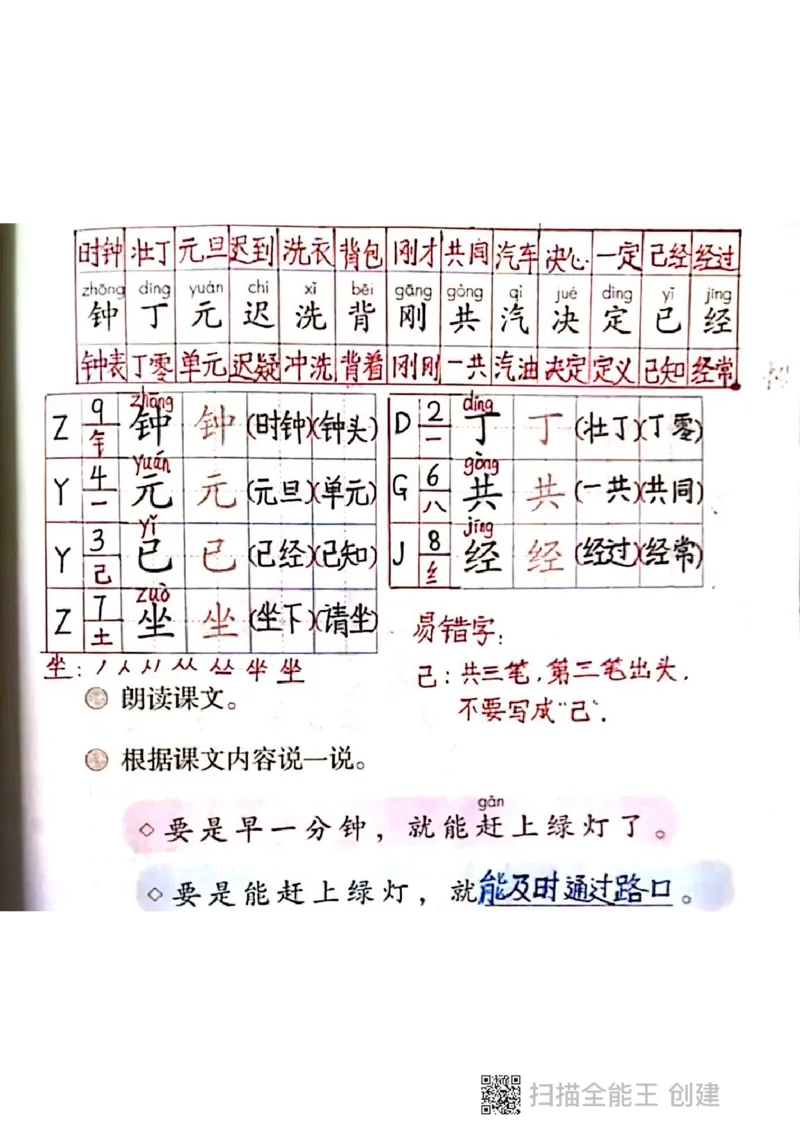 时钟 壮丁 元旦 迟到 洗衣 背包 刚才 共同 汽车 决心 一定 已经 经过
zhōng dīng yuán chí xǐ bēi gāng gòng qì jué dìng yǐ jīng
钟 丁 元 迟 洗 背 刚 共 汽 决 定 已 经
钟表 丁零 单元 迟疑 冲洗 背着 刚刚 一共 汽油 决定 定义 已知 经常
zhōng
Z 9 钅 钟 钟 (时钟)(钟头)
yuán
Y 4 一 元 元 (元旦)(单元)
yǐ
Y 3 己 已 已 (已经)(已知)
zuò
Z 7 土 坐 坐 (坐下)(请坐)
dīng
D 2 一 丁 丁 (壮丁)(丁零)
gòng
G 6 八 共 共 (一共)(共同)
jīng
J 8 纟 经 经 (经过)(经常)
坐:
易错字:
已:共三笔,第三笔出头,
不要写成“己”.
朗读课文。
根据课文内容说一说。
gǎn
◇要是早一分钟,就能赶上绿灯了。
◇要是能赶上绿灯,就能及时通过路口。
扫描全能王 创建